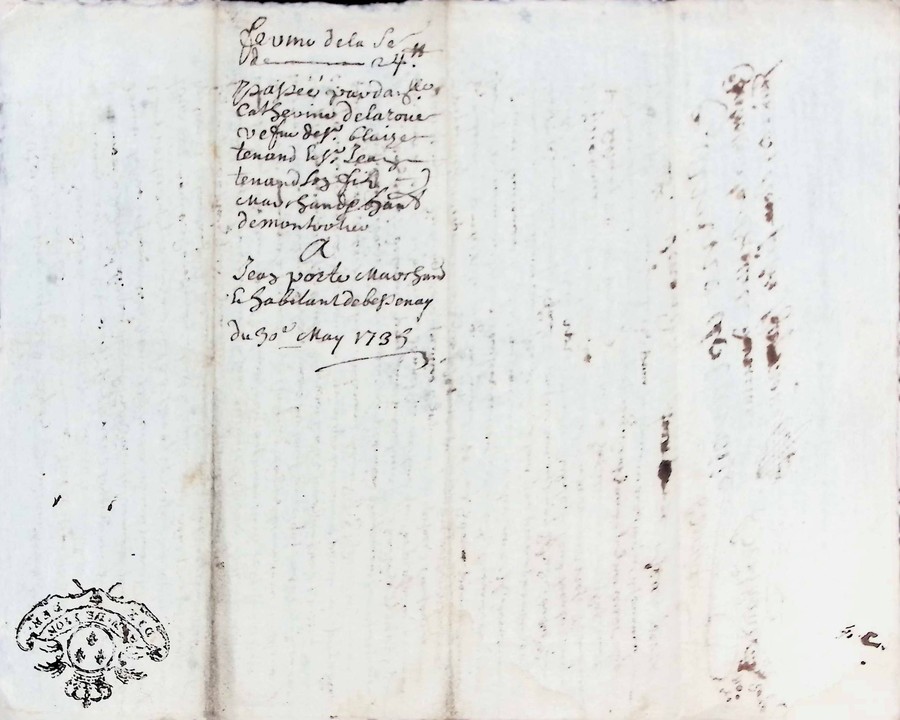 ferme de la Se
de 24 ##
passée par da.lle
Catherine delaroue
vefue de sr. blaize
tenand & sr. Jean
tenand son fils
Marchands habt
de montrotier
A
Jean porte Marchand
& habitant de bessenay
du 30e May 1735